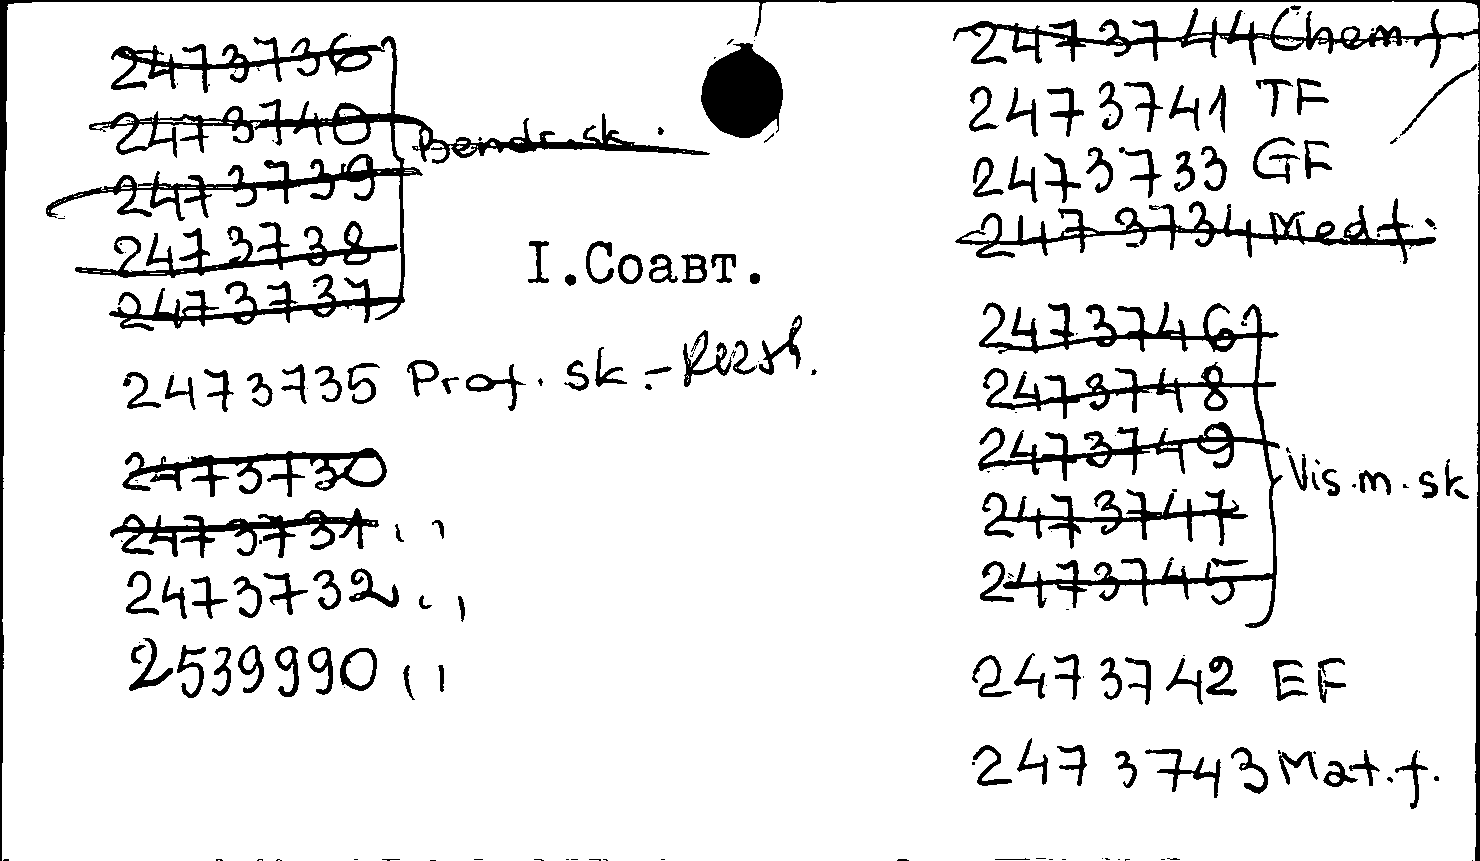 2473736
2473740
Bendr.sk.
2473739
2473738
2473737
I.Соавт.
2473735 Prof. sk.-
2473730
2473731 ''
2473732 ''
2539990 ''
2473744 Chem.f
2473741 TF
2473733 GF
2473734 Med f.
2473746
2473748
2473749
Vis.m.sk
2473747
2473745
2473742 EF
2473743 Mat.f.